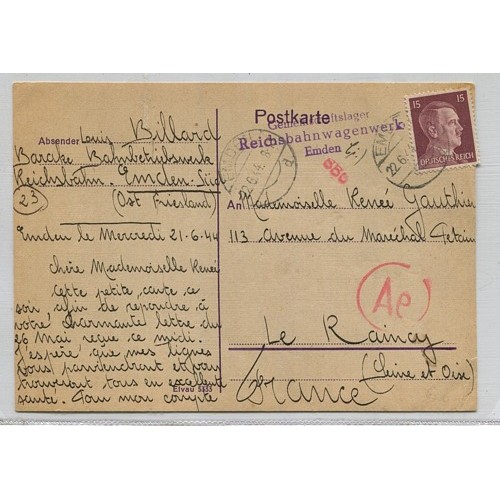 Postkarte
Gemeinschaftslager
Reichsbahnwagenwerk
Emden
15 15
DEUTSCHES REICH
EMDEN
22.6.4
a
22.6.4
Absender Louis Billard
Baracke Bahnbetriebswerk
Reichsbahn. Emden-Süd
(Ost Friesland)
23
Emden le Mercredi 21-6-44
Chère Mademoiselle Renée
Cette petite carte ce
soir afin de repondre à
votre charmante lettre du
26 Mai reçue ce midi.
J'espère que mes lignes
vous parviendront et vous
trouveront tous en excellente
santé. Pour mon compte
Elvau 5353
An Mademoiselle Renée Gauthier
113 Avenue du Maréchal Petain
Ae
Le Raincy
(Seine et Oise)
France